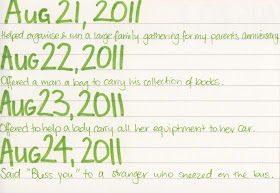 Aug 21, 2011
Helped organise & run a large family gathering for my parents anniversary
Aug 22, 2011
Offered a man a bag to carry his collection of books.
Aug 23, 2011
Offered to help a lady carry all her equiptment to her car.
Aug 24, 2011
Said "Bless you" to a stranger who sneezed on the bus.